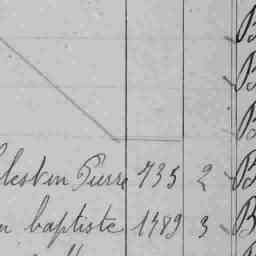 B
B
B
lestin Pierre 1735 2 B
n baptiste 1789 3 B